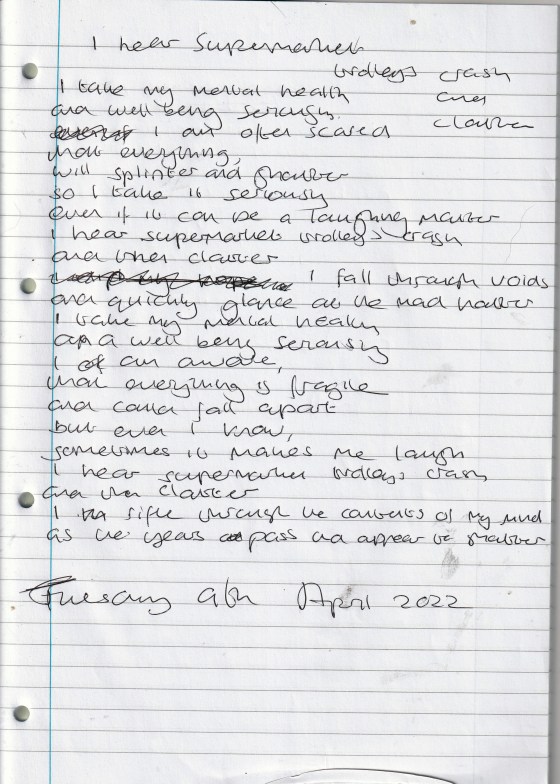 I hear Supermarket
trolleys crash
and
clatter
I take my mental health
and well being seriously.
I am often scared
that everything,
will splinter and shatter
so I take it seriously
even if it can be a laughing matter
I hear supermarket trolleys crash
and then clatter
I fall through voids
and quickly glance at the mad hatter
I take my mental health
and well being seriously
I am aware,
that everything is fragile
and could fall apart
but even I know,
sometimes it makes me laugh
I hear supermarket trolleys crash
and then clatter
I sift through the contents of my mind
as the years pass and appear to shatter
Tuesday 9th April 2022